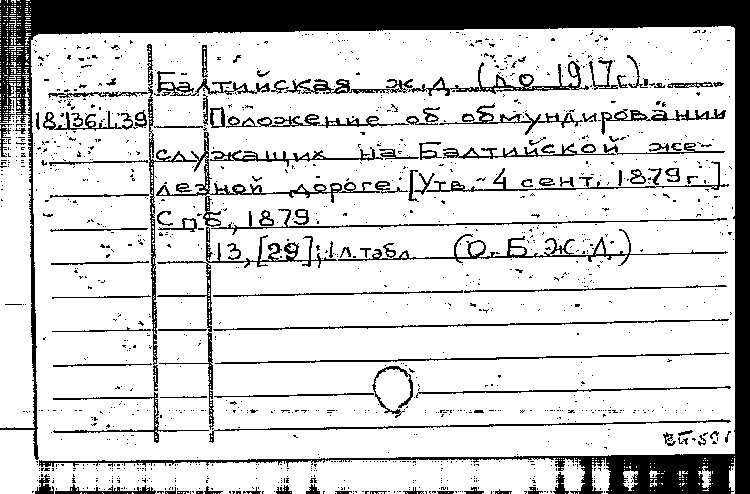 Балтийская ж.д. (до 1917г.).
18.136.1.39 Положение об обмундировании
служащих на Балтийской же-
лезной дороге. [Утв. 4 сент. 1879г.]
Спб., 1879.
13, [29]; 1 л. табл. (О.Б.Ж.Д.)